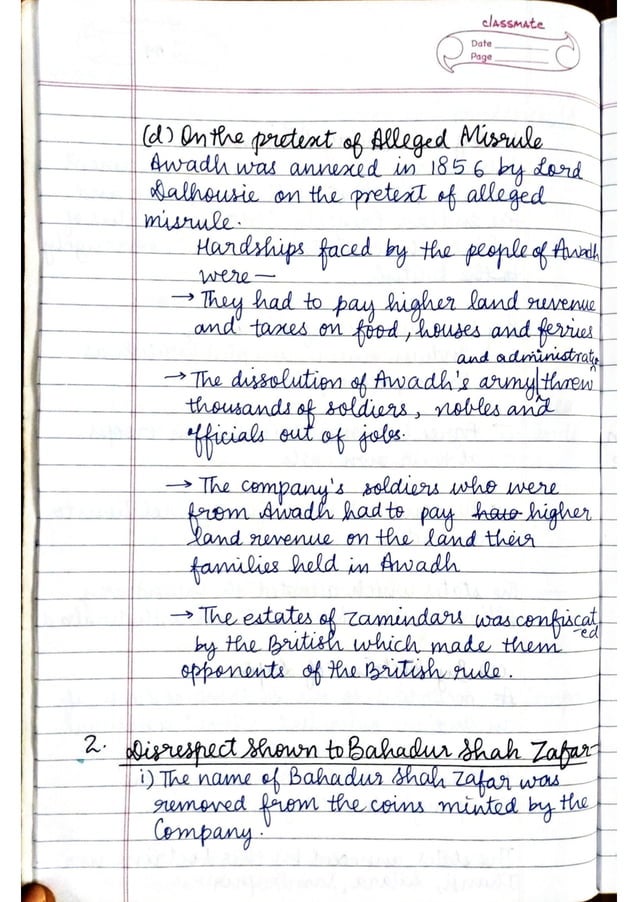 classmate
Date
Page
(d) On the pretext of Alleged Misrule
Awadh was annexed in 1856 by Lord
Dalhousie on the pretext of alleged
misrule.
Hardships faced by the people of Awadh
were —
→ They had to pay higher land revenue
and taxes on food, houses and ferries
and administratn
→ The dissolution of Awadh's army threw
thousands of soldiers, nobles and
officials out of jobs.
→ The company's soldiers who were
from Awadh had to pay higher
land revenue on the land their
families held in Awadh
→ The estates of zamindars was confiscat
-ed
by the British which made them
opponents of the British rule.
2. Disrespect Shown to Bahadur Shah Zafar-
i) The name of Bahadur Shah Zafar was
removed from the coins minted by the
Company.